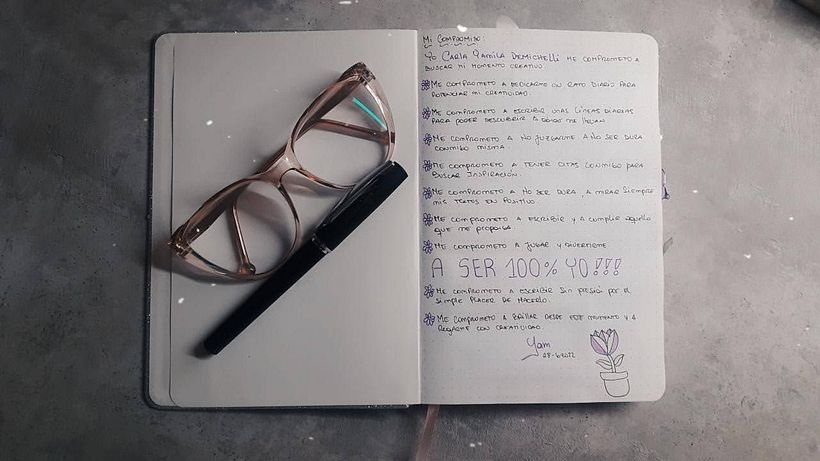 Mi Compromiso:
Yo Carla Yamila Demichelli me comprometo a
buscar mi momento creativo.
Me comprometo a dedicarme un rato diario para
potenciar mi creatividad.
Me comprometo a escribir unas líneas diarias
para poder descubrir a dónde me llevan
Me comprometo a no juzgarme a no ser dura
conmigo misma.
Me comprometo a tener citas conmigo para
buscar inspiración.
Me comprometo a no ser dura, a mirar siempre
mis textos en positivo.
Me comprometo a escribir y a cumplir aquello
que me proponga.
Me comprometo a jugar y divertirme
A SER 100% YO!!!
Me comprometo a escribir sin presión por el
simple placer de hacerlo.
Me comprometo a brillar desde este momento y a
regarme con creatividad.
Yam
28-6-2022